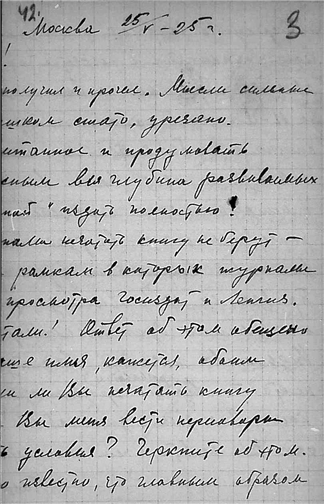 42.
3
Москва 25/V – 25 г.
!
получил и прочел. Мысли сильные
шком сжато, урезано.
итанное и продумывать
сным вся глубина развиваемых
издать полностью!
печатать книгу не берут –
рамкам в которых журналы
просмотра Госиздат и Ленгиз.
тали! Ответ об этом обещано
ше имя, кажется, обоим
и ли Вы печатать книгу
Вы меня вести переговоры
ь условия? Черкните об этом.
о известно, что главным образом